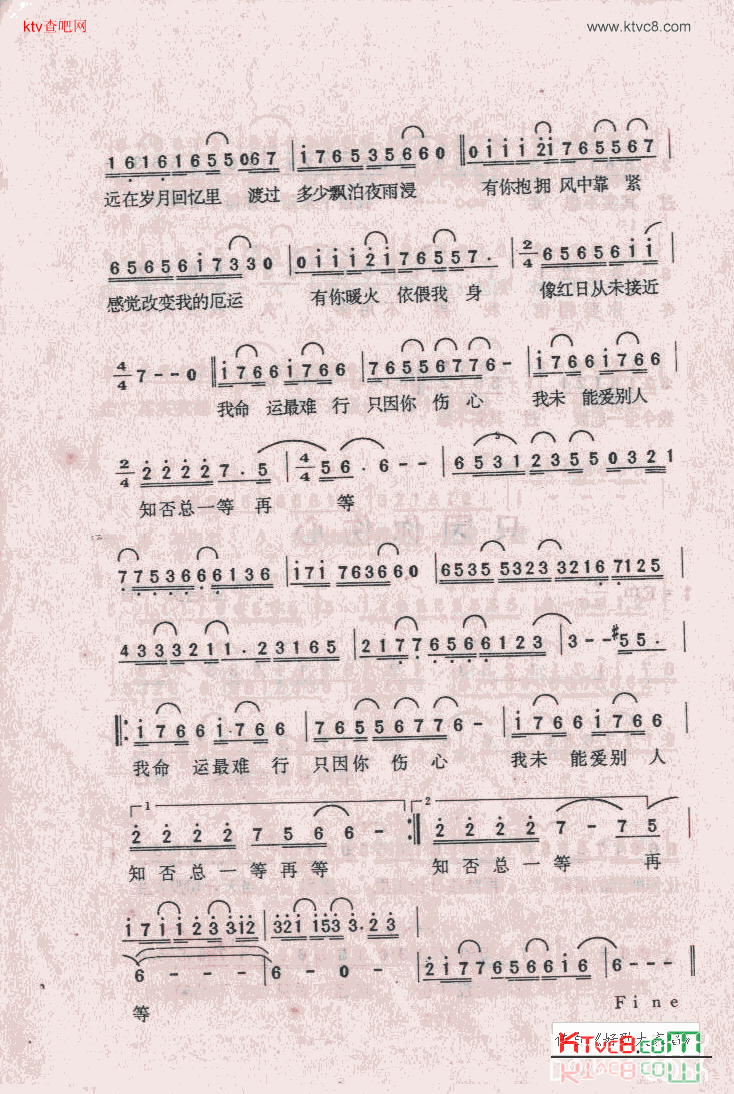 ktv查吧网 www.ktvc8.com
1 6 1 6 1 6 5 5 0 6 7 | i 7 6 5 3 5 6 6 0 || 0 i i i 2 i 7 6 5 5 6 7 |
远在岁月回忆里 渡过 多少飘泊夜雨浸 有你抱拥 风中靠 紧
6 5 6 5 6 i 7 3 3 0 | 0 i i i 2 i 7 6 5 5 7 . | 2/4 6 5 6 5 6 i i |
感觉改变我的厄运 有你暖火 依偎我 身 像红日从未接近
4/4 7 - - 0 || i 7 6 6 i 7 6 6 | 7 6 5 5 6 7 7 6 - | i 7 6 6 i 7 6 6 |
我命 运最难 行 只因你 伤 心 我未 能爱别人
2/4 2 2 2 2 7 . 5 | 4/4 5 6 . 6 - - | 6 5 3 1 2 3 5 5 0 3 2 1
知否总一等 再 等
7 7 5 3 6 6 6 1 3 6 | i 7 i 7 6 3 6 6 0 | 6 5 3 5 5 3 2 3 3 2 1 6 7 1 2 5 |
4 3 3 3 2 1 1 . 2 3 1 6 5 | 2 1 7 7 6 5 6 6 1 2 3 | 3 - - #5 5 . |
||: i 7 6 6 i . 7 6 6 | 7 6 5 5 6 7 7 6 - | i 7 6 6 i 7 6 6 |
我命 运最难 行 只因你 伤 心 我未 能爱别 人
1 2
2 2 2 2 7 5 6 6 - :|| 2 2 2 2 7 - 7 5 |
知 否 总 一 等 再 等 知 否 总 一 等 再
i 7 i i 2 3 3 i 2 | 3 2 i i 5 3 3 . 2 3 |
6 - - - 6 - 0 - | 2 i 7 7 6 5 6 6 i 6 | 6 - - - ||
等 Fine
KTVC8.COM